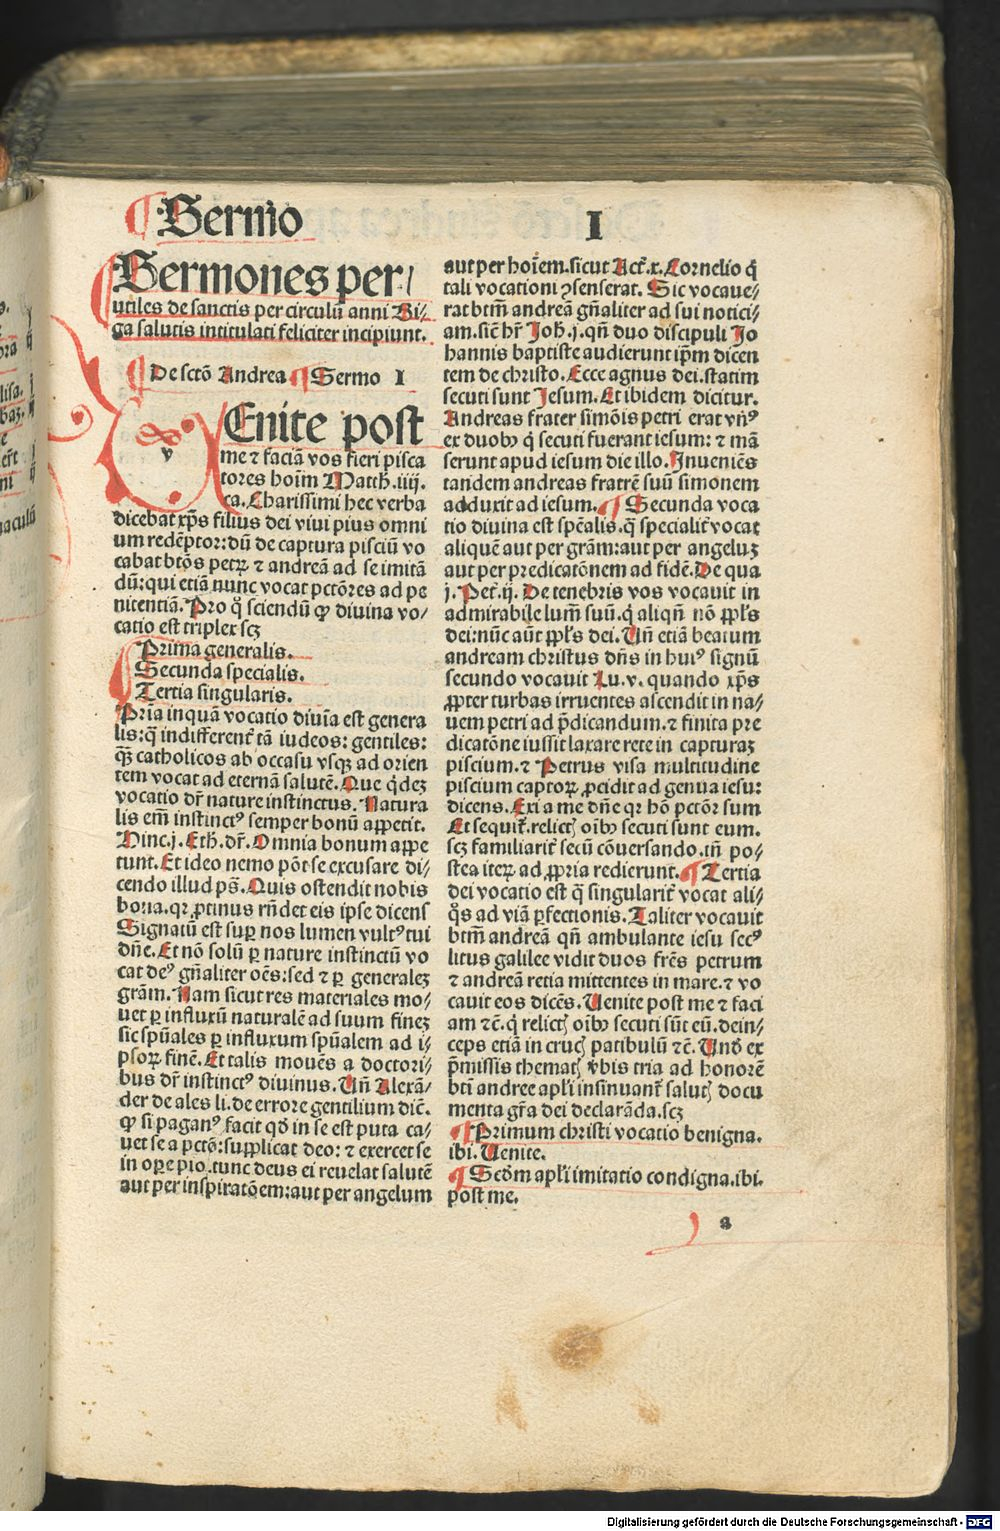 ¶ Sermo
I
Sermones per/
utiles de sanctis per circulū anni Bi/
ga salutis intitulati feliciter incipiunt.
¶ De sctō Andrea ¶ Sermo I
v
Enite post
me ⁊ faciā vos fieri pisca
tores hoīm Matth. iiij.
ca. Charissimi hec verba
dicebat xp̄s filius dei vivi pius omni
um redēptor: dū de captura pisciū vo
cabat btōs petrꝝ ⁊ andreā ad se imitā
dū: qui etiā nunc vocat pctōres ad pe
nitentiā. Pro q̄ sciendū ꝙ divina vo/
catio est triplex scꝫ
Prima generalis.
Secunda specialis.
Tertia singularis.
Prīa inquā vocatio divīa est genera
lis: q̄ indifferent̄ tā iudeos: gentiles:
qꝫ̄ catholicos ab occasu vsqꝫ ad orien
tem vocat ad eternā salutē. Que q̇deꝫ
vocatio dr̄ nature instinctus. Natura
lis em̄ instinctꝰ semper bonū appetit.
Hinc. j. Eth. dr̄. Omnia bonum appe
tunt. Et ideo nemo pōt se excusare di/
cendo illud ps̄. Quis ostendit nobis
bona. qr ꝓtinus rn̄det eis ipse dicens
Signatū est suꝑ nos lumen vultꝰ tui
dn̄e. Et nō solū ꝑ nature instinctū vo
cat deꝰ gn̄aliter oēs: sed ⁊ ꝑ generaleꝫ
grām. Nam sicut res materiales mo/
uet ꝑ influxū naturalē ad suum fineꝫ
sic spūales ꝑ influxum spūalem ad i/
psoꝝ finē. Et talis mouēs a doctori/
bus dr̄ instinctꝰ divinus. Un̄ Alexā/
der de ales li. de errore gentilium dic̄.
ꝙ si paganꝰ facit qd̄ in se est puta ca/
uet se a pctō: supplicat deo: ⁊ exercet se
in oꝑe pio. tunc deus ei reuelat salutē
aut per inspiratōem: aut per angelum
aut per hoīem. sicut Act̄. x. Cornelio q̇
tali vocationi ꝯsenserat. Sic vocaue/
rat btm̄ andreā gn̄aliter ad sui notici/
am. sic̄ hr̄ Joh̄. j. qn̄ duo discipuli Jo
hannis baptiste audierunt ip̄m dicen
tem de christo. Ecce agnus dei. statim
secuti sunt Jesum. Et ibidem dicitur.
Andreas frater simōis petri erat vn̄ꝰ
ex duobꝫ q̇ secuti fuerant iesum: ⁊ mā
serunt apud iesum die illo. Inueniēs
tandem andreas fratrē suū simonem
adduxit ad iesum. ¶ Secunda voca
tio divina est spēalis. q̄ specialit̄ vocat
aliquē aut per grām: aut per angeluꝫ
aut per predicatōnem ad fidē. De qua
j. Pet̄. ij. De tenebris vos vocavit in
admirabile lum̄ suū. q̇ aliqn̄ nō ppl̄s
dei: nūc aūt ppl̄s dei. Un̄ etiā beatum
andream christus dn̄s in huiꝰ signū
secundo vocauit Lu. v. quando xp̄s
ꝓpter turbas irruentes ascendit in na/
uem petri ad p̄dicandum. ⁊ finita pre
dicatōne iussit laxare rete in capturaꝫ
piscium. ⁊ Petrus visa multitudine
piscium captoꝝ. ꝓcidit ad genua iesu:
dicens. Exi a me dn̄e qr hō pctōr sum
Et sequit̄. relictꝭ oībꝫ secuti sunt eum.
scꝫ familiarit̄ secū cōuersando. tn̄ po/
stea iteꝝ ad ꝓpria redierunt. ¶ Tertia
dei vocatio est q̄ singularit̄ vocat ali/
q̊s ad viā ꝑfectionis. Taliter vocauit
btm̄ andreā qn̄ ambulante iesu secꝰ
litus galilee vidit duos frēs petrum
⁊ andreā retia mittentes in mare. ⁊ vo
cauit eos dicēs. Uenite post me ⁊ faci
am ⁊c̄. q̇ relictꝭ oībꝫ secuti sūt eū. dein/
ceps etiā in crucꝭ patibulū ⁊c̄. Und̄ ex
p̄missis thematꝭ v̄bis tria ad honorē
btī andree apl̄i insinuant̄ salutꝭ docu
menta gr̄a dei declarāda. scꝫ
¶ Primum christi vocatio benigna.
ibi. Uenite.
¶ Scd̄m apl̄i imitatio condigna. ibi.
post me.
a
Digitalisierung gefördert durch die Deutsche Forschungsgemeinschaft - DFG